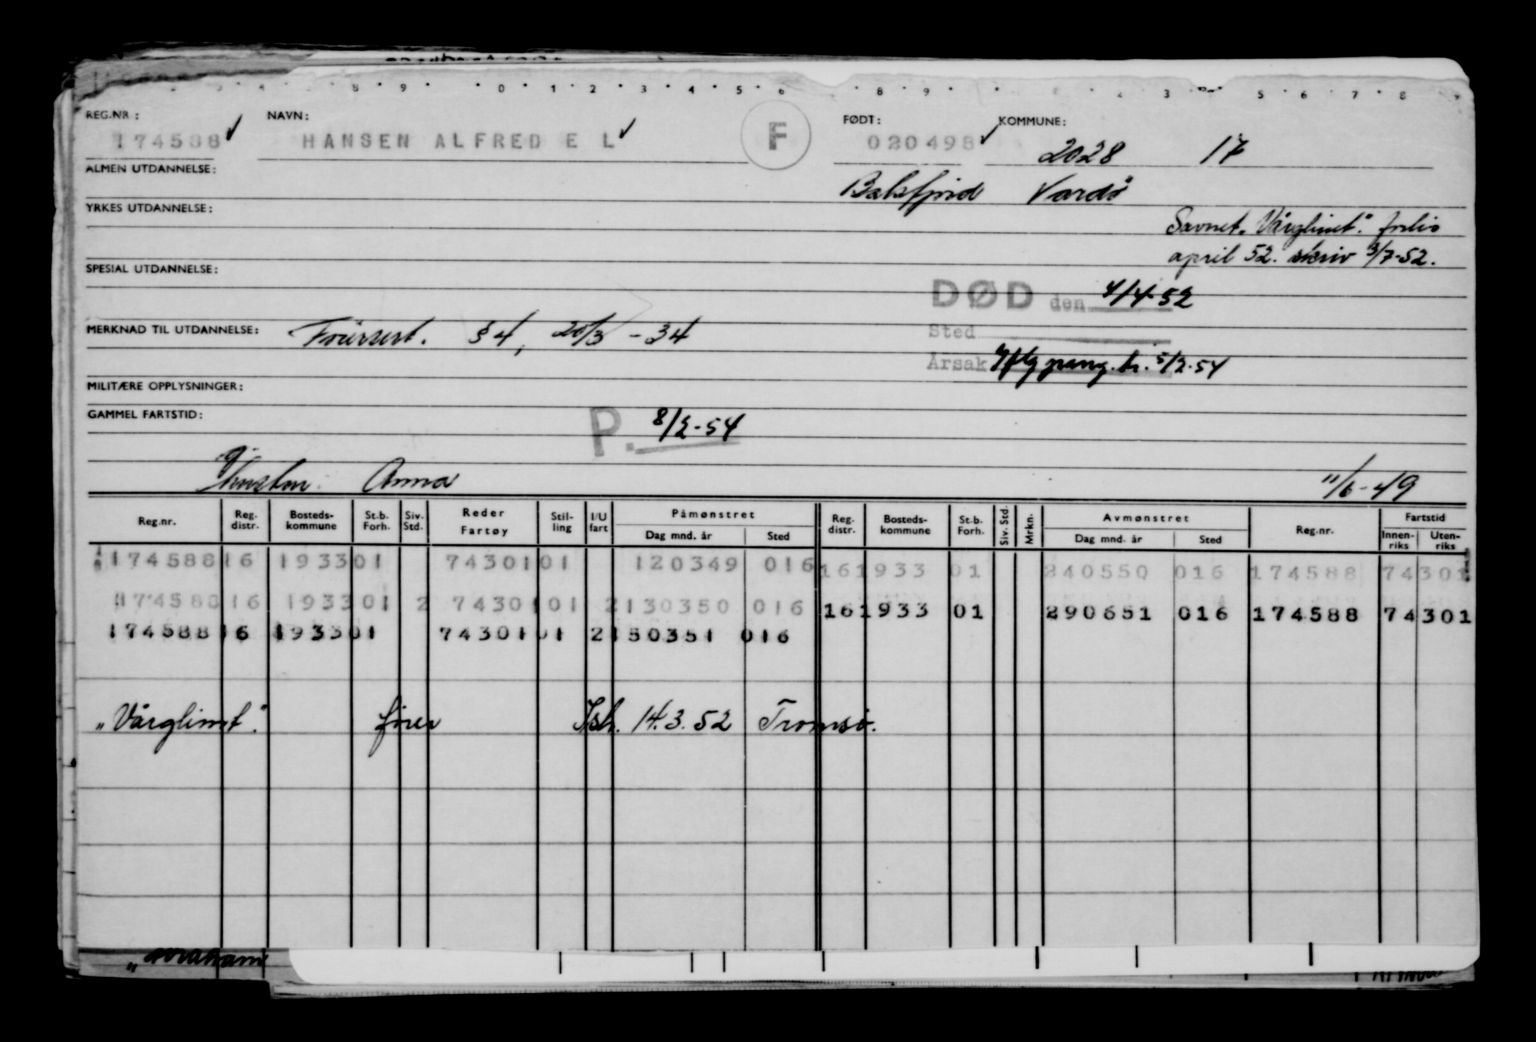 REG.NR : NAVN: F FØDT: KOMMUNE:
174588 HANSEN ALFRED E L 020498 2028 17
ALMEN UTDANNELSE:
Balsfjord Vardö
YRKES UTDANNELSE:
Savnet „Vårglimt". forlis
april 52. skriv 3/7-52.
SPESIAL UTDANNELSE:
DØD den 4/4-52
Sted
MERKNAD TIL UTDANNELSE: §4, 20/3 - 34
Årsak 5/2-54
MILITÆRE OPPLYSNINGER:
GAMMEL FARTSTID:
P. 8/2-54
Anna
11/6-49
Reg.nr. Reg. distr. Bosteds- kommune St.b. Forh. Siv. Std. Reder Fartøy Stil- ling I/U fart Påmønstret Dag mnd. år Sted Reg. distr. Bosteds- kommune St.b. Forh. Siv. Std. Mrkn. Avmønstret Dag mnd. år Sted Reg.nr. Fartstid Innen- riks Uten- riks
174588 16 1933 01 7430101 120349 016 16 1933 01 240550 016 174588 74301
174588 16 1933 01 2 7430101 2 130350 016 16 1933 01 290651 016 174588 74301
174588 16 1933 01 7430101 2 150351 016
„Vårglimt". fører Ish. 14.3.52 Tromsø.